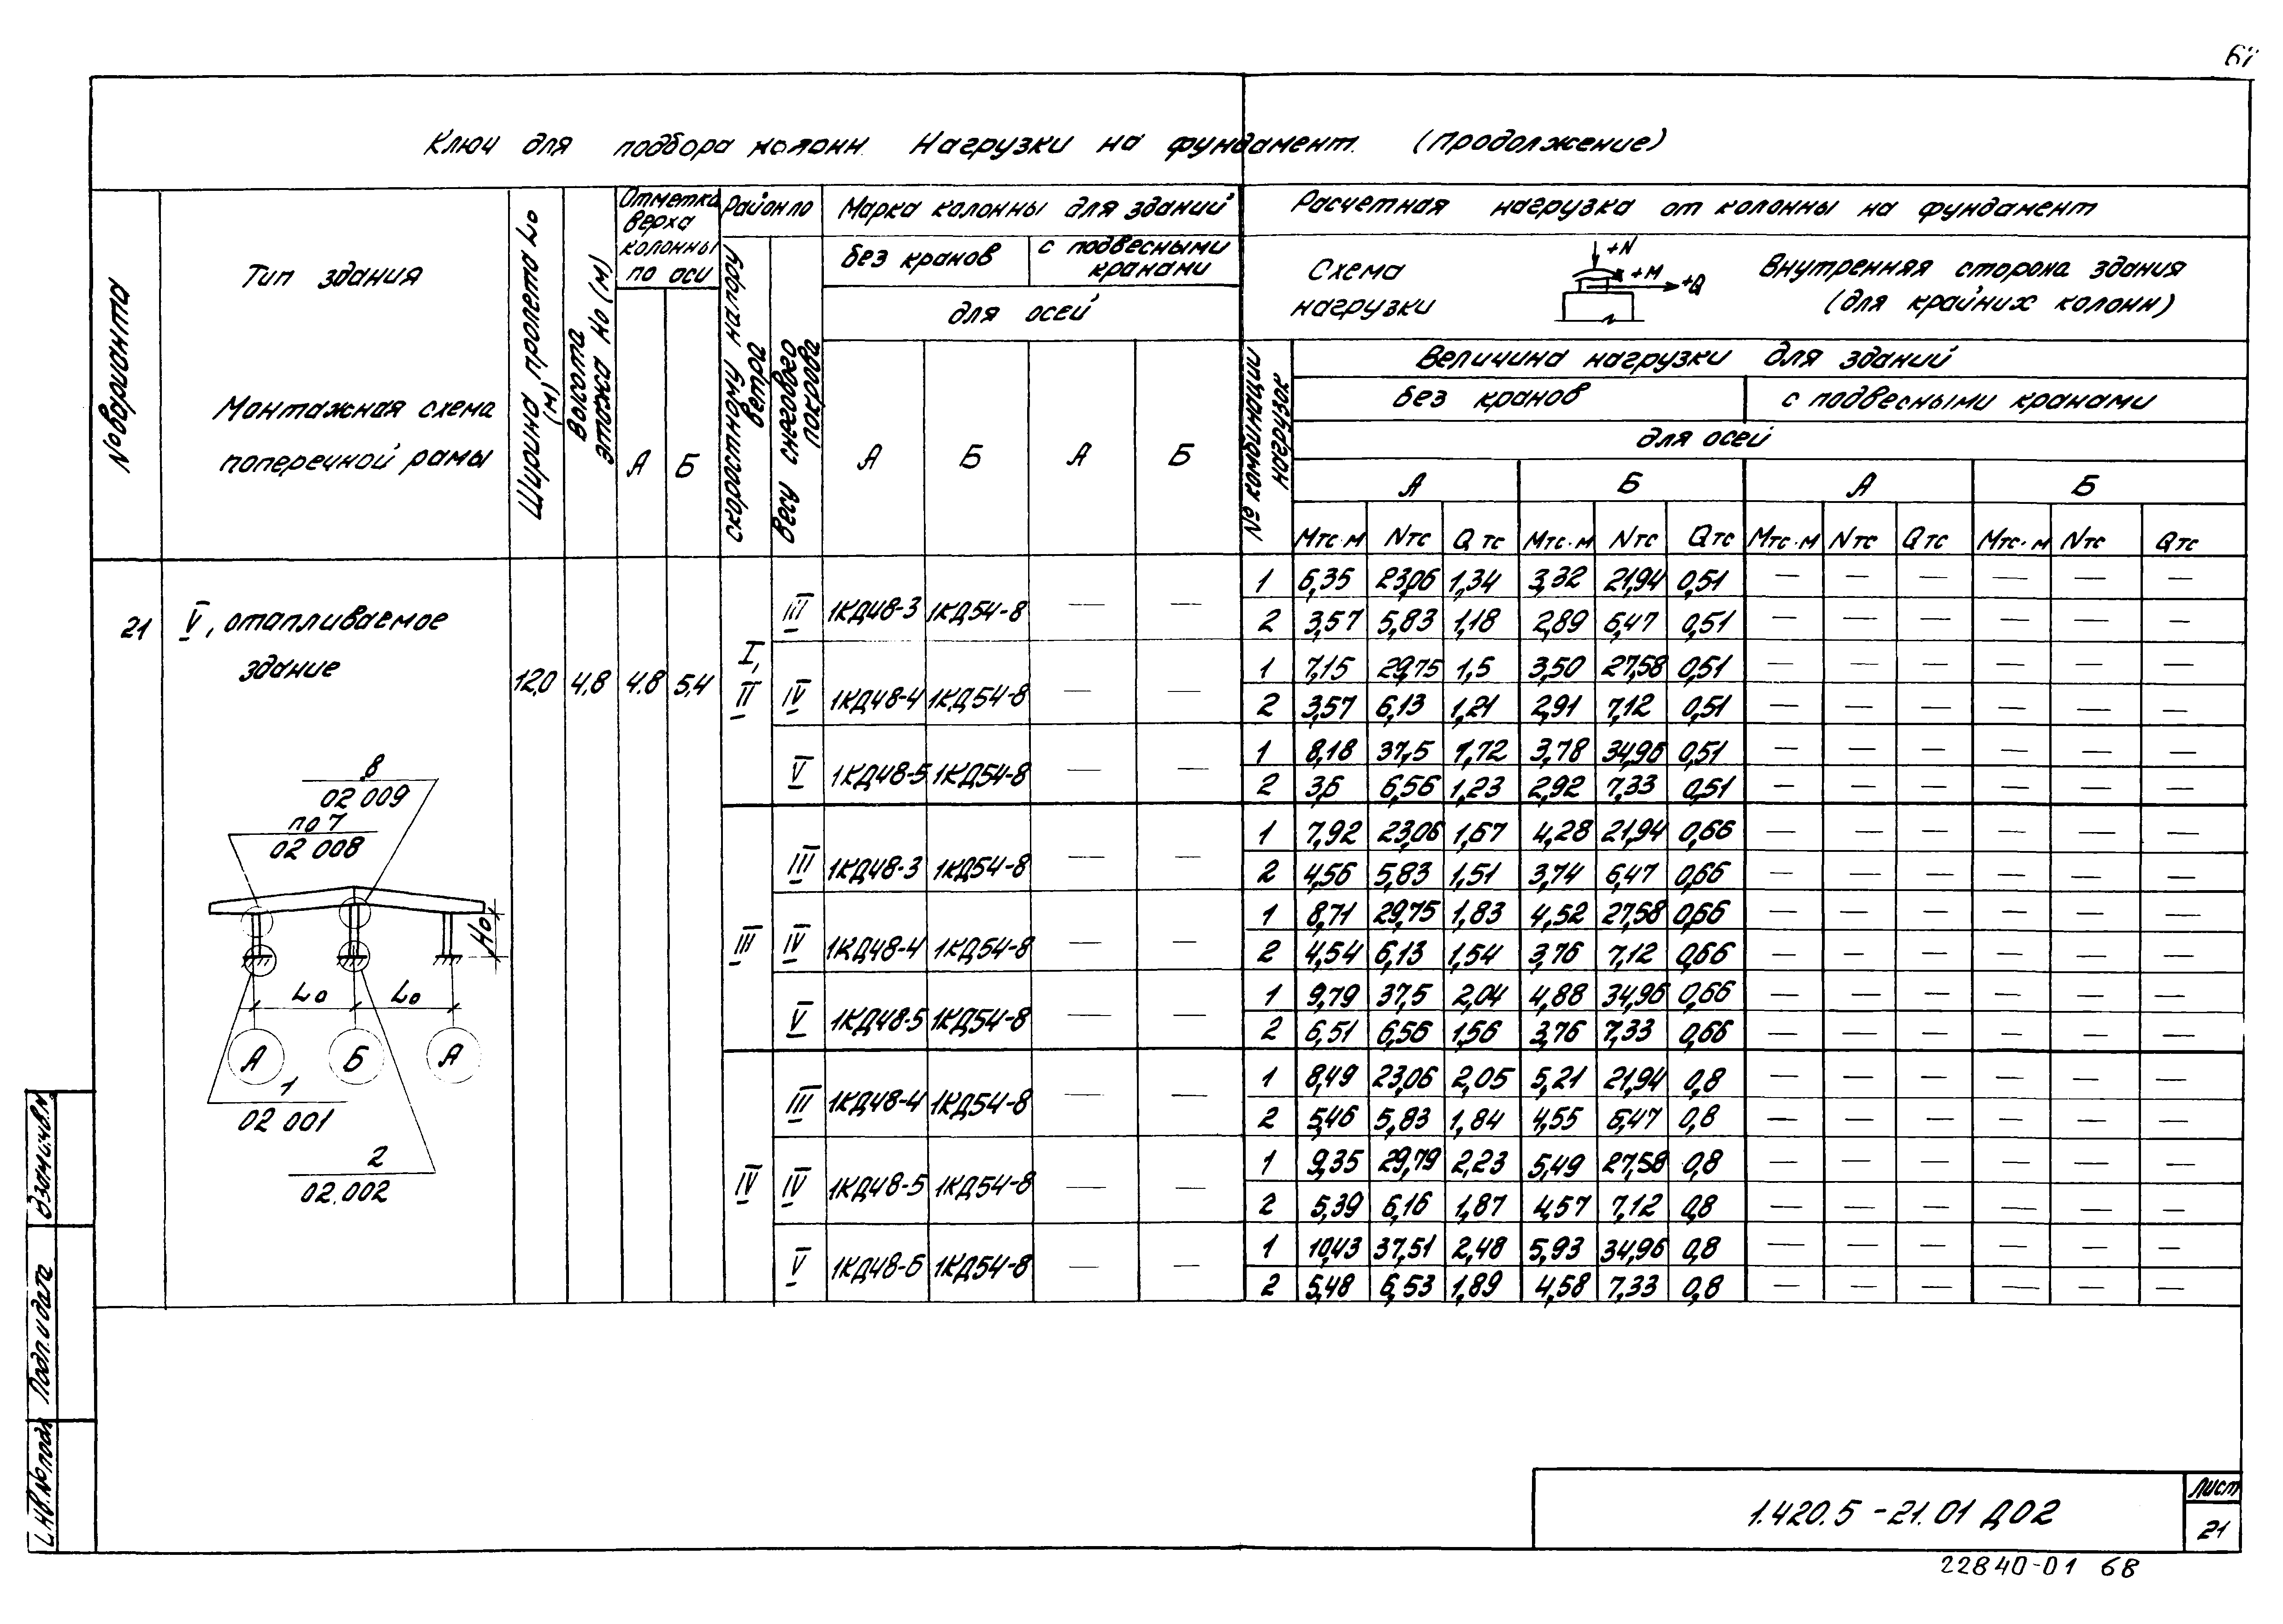 67
Ключ для подбора колонн. Нагрузки на фундамент. (Продолжение)
№ варианта
Тип здания
Монтажная схема
поперечной рамы
Ширина пролета Lо (м)
Высота этажа Но (м)
Отметка верха колонны по оси
А Б
Район по
скоростному напору ветра
весу снегового покрова
Марка колонны для зданий
без кранов
с подвесными кранами
для осей
А Б А Б
Расчетная нагрузка от колонны на фундамент
Схема нагрузки
+N
+М
+Q
Внутренняя сторона здания
(для крайних колонн)
№ комбинации нагрузок
Величина нагрузки для зданий
без кранов
с подвесными кранами
для осей
А Б А Б
Мтс·м Nтс Qтс Мтс·м Nтс Qтс Мтс·м Nтс Qтс Мтс·м Nтс Qтс
21
V, отапливаемое
здание
12,0 4,8 4.8 5,4
I, II
III 1КД48-3 1КД54-8 — —
1 6,35 23,06 1,34 3,32 21,94 0,51 — — — — — —
2 3,57 5,83 1,18 2,89 6,47 0,51 — — — — — —
IV 1КД48-4 1КД54-8 — —
1 7,15 29,75 1,5 3,50 27,58 0,51 — — — — — —
2 3,57 6,13 1,21 2,91 7,12 0,51 — — — — — —
V 1КД48-5 1КД54-8 — —
1 8,18 37,5 1,72 3,78 34,96 0,51 — — — — — —
2 3,6 6,56 1,23 2,92 7,33 0,51 — — — — — —
III
III 1КД48-3 1КД54-8 — —
1 7,92 23,06 1,67 4,28 21,94 0,66 — — — — — —
2 4,56 5,83 1,51 3,74 6,47 0,66 — — — — — —
IV 1КД48-4 1КД54-8 — —
1 8,71 29,75 1,83 4,52 27,58 0,66 — — — — — —
2 4,54 6,13 1,54 3,76 7,12 0,66 — — — — — —
V 1КД48-5 1КД54-8 — —
1 9,79 37,5 2,04 4,88 34,96 0,66 — — — — — —
2 6,51 6,56 1,56 3,76 7,33 0,66 — — — — — —
IV
III 1КД48-4 1КД54-8 — —
1 8,49 23,06 2,05 5,21 21,94 0,8 — — — — — —
2 5,46 5,83 1,84 4,55 6,47 0,8 — — — — — —
IV 1КД48-5 1КД54-8 — —
1 9,35 29,79 2,23 5,49 27,58 0,8 — — — — — —
2 5,39 6,16 1,87 4,57 7,12 0,8 — — — — — —
V 1КД48-6 1КД54-8 — —
1 10,43 37,51 2,48 5,93 34,96 0,8 — — — — — —
2 5,48 6,53 1,89 4,58 7.33 0,8 — — — — — —
8
02 009
по 7
02 008
Но
Lо Lо
А Б А
1
02 001
2
02.002
Взам.инв.№
Подп. и дата
Инв.№ подл
1.420.5-21.01 Д02
Лист
21
22840-01 68